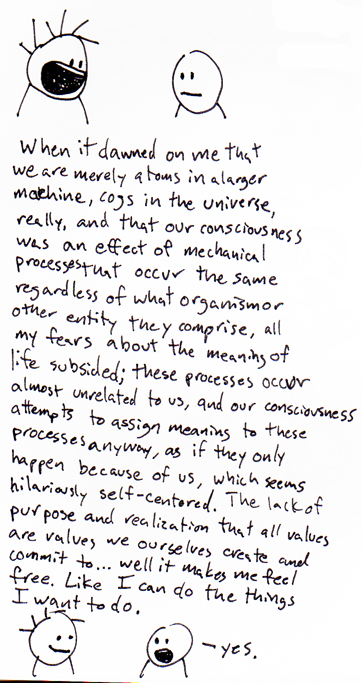 When it dawned on me that
we are merely atoms in a larger
machine, cogs in the universe,
really, and that our consciousness
was an effect of mechanical
processes that occur the same
regardless of what organism or
other entity they comprise, all
my fears about the meaning of
life subsided; these processes occur
almost unrelated to us, and our consciousness
attempts to assign meaning to these
processes anyway, as if they only
happen because of us, which seems
hilariously self-centered. The lack of
purpose and realization that all values
are values we ourselves create and
commit to... well it makes me feel
free. Like I can do the things
I want to do.
– yes.